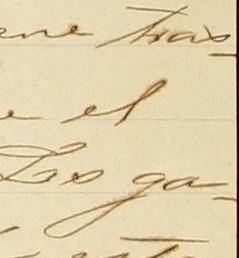 ne tras-
e el
Los ga-